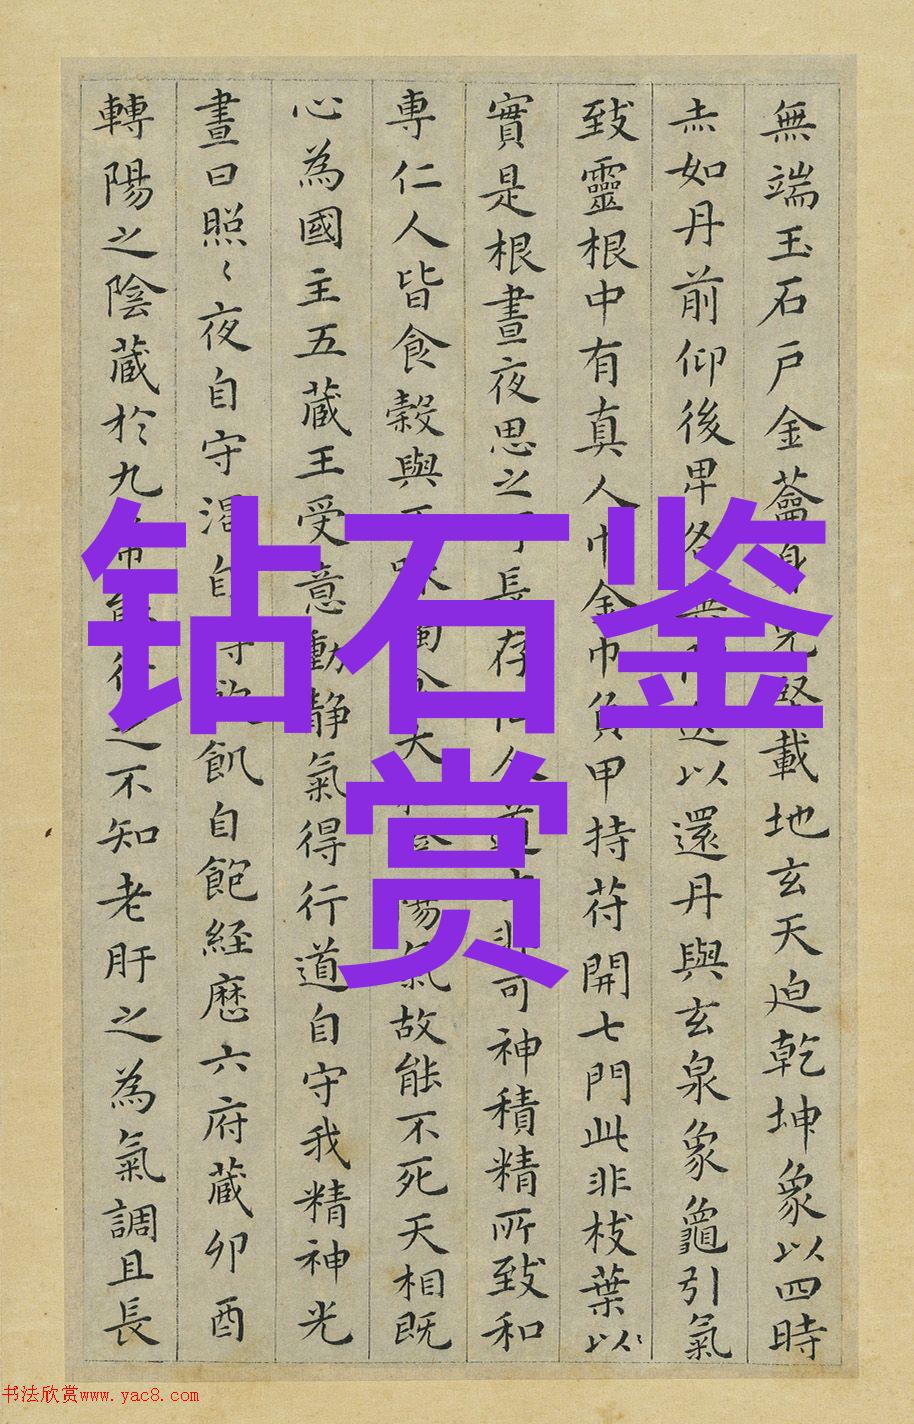 無端玉石戶金蘥身完堅載地玄天迫乾坤象以四時
赤如丹前仰後卑各送以還丹與玄泉象龜引氣
致靈根中有真人巾金巾負甲持苻開七門此非枝葉以
實是根晝夜思之長存人道可神積精所致和
專仁人皆食穀與陽氣故能不死天相既
心為國主五蔵王受意動静氣得行道自守我精神光
晝日照〻夜自守渴自飢自飽経歷六府蔵卯酉
轉陽之陰蔵於九之不知老肝之為氣調且長
钻石鉴
赏
书法欣赏www.yac8.com